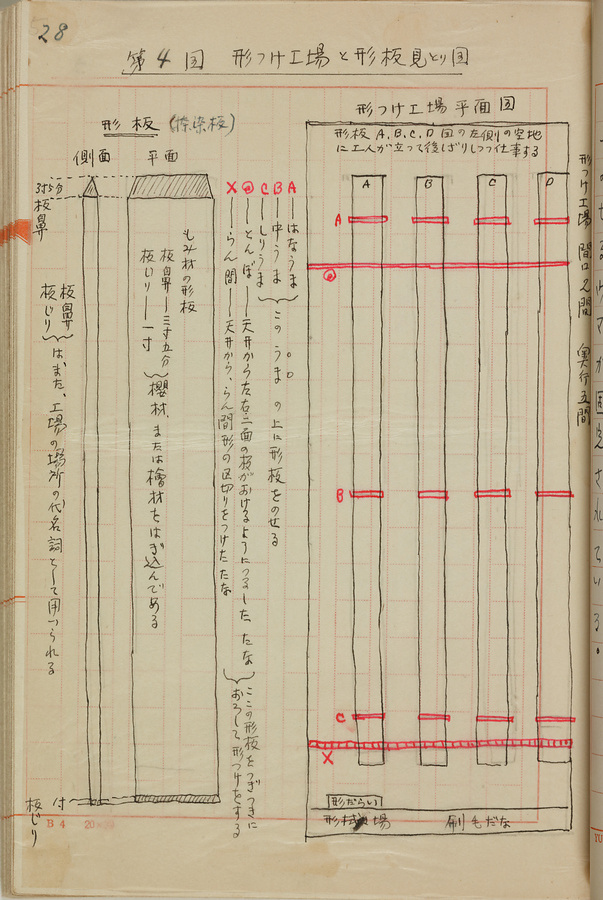 28
第4図 形つけ工場と形板見とり図
形つけ工場平面図
形板A,B,C,D図の左側の空地
に工人が立って後しざりしつつ仕事する
A B C D
A
B
C
X
形つけ工場 間口2間 実行五間
形だらい
形板場 刷毛だな
A―はなうま
B―中うま
C―しりうま
このうまの上に形板をのせる
◎―とんぼ―天井から左右二面の板がおけるようにつるしたたな
X―らん間―天井から、らん間形の区切りをつけたたな
ここの形板をつぎつぎに
おろして形つけをする
形板(捺染板)
側面 平面
もみ材の形板
板鼻―三寸五分
板じり―一寸
櫻材、または檜材をはぎ込んである
3寸5分
板鼻
板鼻
板じり
は、また、工場の場所の代名詞として用いられる
1寸
板じり
B4 20